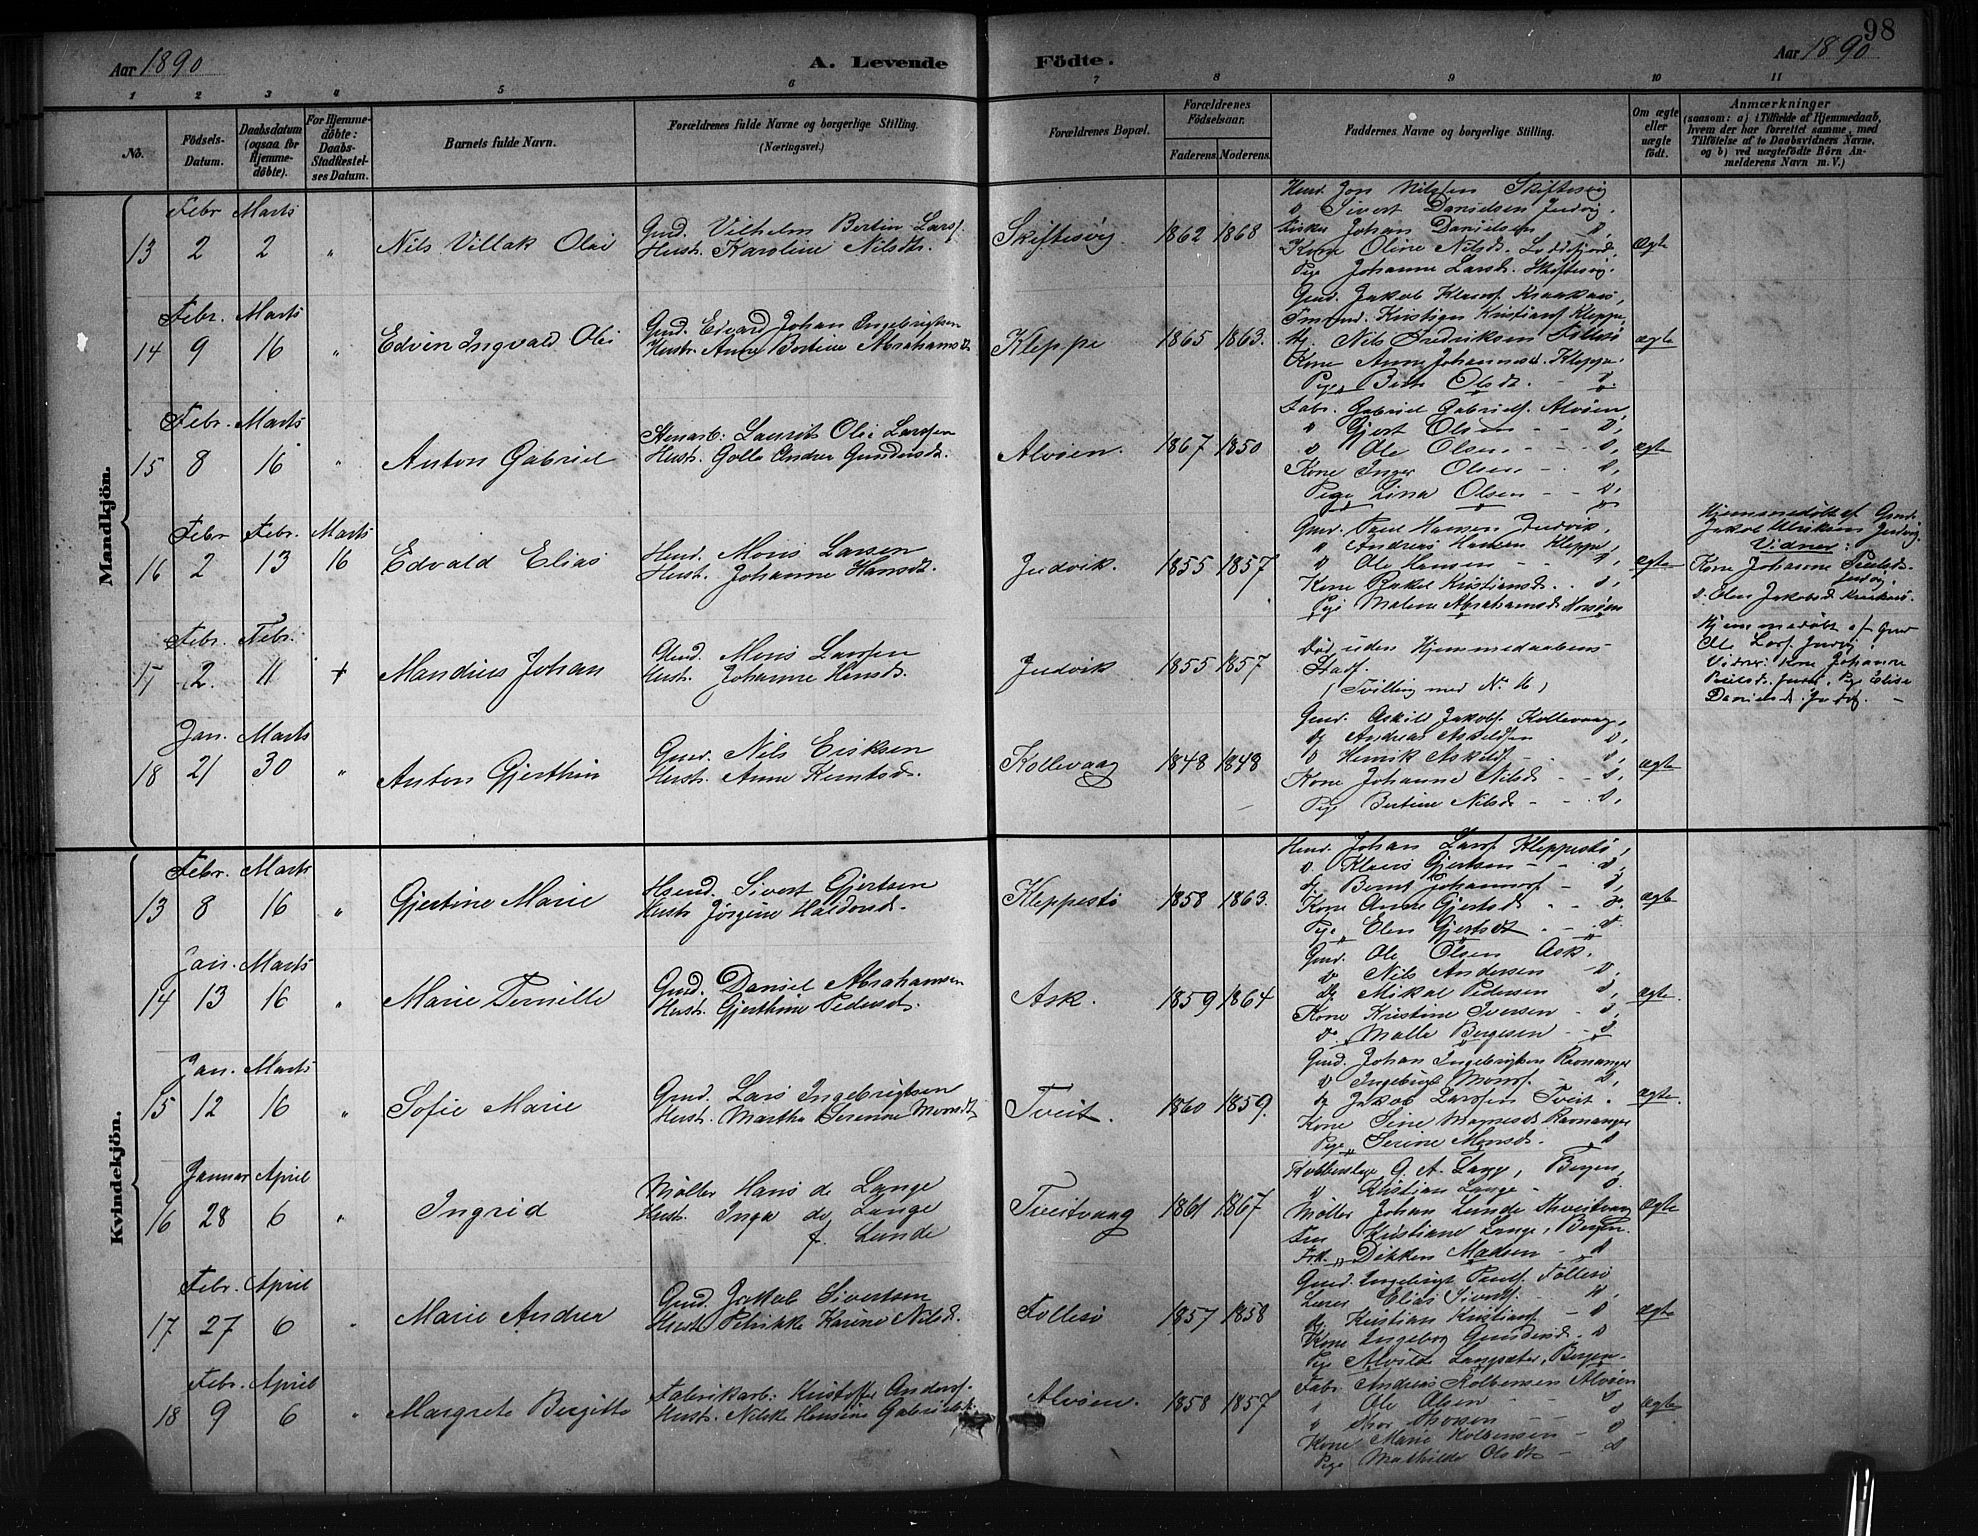 98
Aar 1890
A. Levende Födte.
Aar 1890
1 2 3 4 5 6 7 8 9 10 11
No.
Födsels-Datum.
Daabsdatum (ogsaa for Hjemme-döbte).
For Hjemme-döbte: Daabs-Stadfæstel-ses Datum.
Barnets fulde Navn.
Forældrenes fulde Navne og borgerlige Stilling.
(Næringsvei.)
Forældrenes Bopæl.
Forældrenes Födselsaar.
Faderens. Moderens.
Faddernes Navne og borgerlige Stilling.
Om ægte eller uægte födt.
Anmærkninger
(saasom: a) i Tilfælde af Hjemmedaab, hvem der har forrettet samme, med Tilföielse af to Daabsvidners Navne, og b) ved uægtefödte Börn An-melderens Navn m. V.)
Mandkjön.
Febr Marts
13 2 2 " Nils Villak Olai
Gmd. Vilhelm Bertin Larsf.
Hustr. Karoline Nilsdtr.
Skiftesvig 1862 1868
Jon Nilsen Skiftesvig
Sivert Danielsen Judvig.
Johan Danielsen
Kone Oline Nilsd. Loddefjord
Pige Johanne Larsd. Skiftesvig.
ægte
Febr. Marts
14 9 16 " Edvin Ingvald Olai
Gmd. Edvard Johan Ingebrigtsen
Hustr. Anna Bertine Abrahamsdt
Kleppe 1865 1863.
Gmd. Jakob Klausf.
Kristian Kristiansf Kleppe,
Nils Fredriksen Follesø
Kone Anna Johannesd. Kleppe.
Pige Berte Olsdt. - "
ægte
Febr. Marts
15 8 16 " Anton Gabriel
Stenarb: Laurits Olai Larssen
Hustr. Golla Andrea Gundersdt.
Alvøen. 1867 1850
Fabr. Gabriel Gabrielsf. Alvøen,
" Gjert Olsen
" Ole Olsen
Kone Inger Olsen
Pige Lina Olsen
ægte
Febr Febr. Marts
16 2 13 16 Edvald Elias
Hmd. Mons Larsen
Hustr. Johanne Hansdt.
Judvik. 1855 1857
Gmd. Paul Hansen Judvik,
" Andreas Hansen Kleppe,
" Ole Hansen
Kone Rakel Kristiansd.
Pige Malene Abrahamsd.
ægte
Hjemmedøbt af Gmd.
Jakob Judvig.
Vidner:
Kone Johanne
Judvig.
Elen Jakobsd
Febr. Febr.
17 2. 11 + Mandius Johan
Gmd. Mons Larssen
Hustr. Johanne Hansdt.
Judvik 1855 1857
Død uden Hjemmedaabens
Stadf.
(Tvilling med Nr. 16)
Hjemmedøbt af Gmd
Ole Larsf. Judvig.
Vidner: Kone Johanne
Pige Elise
Danielsd. Judvig. -
Jan. Marts
18 21 30 " Anton Gjerthin
Gmd. Nils Eriksen
Hustr. Anna Knutsdt.
Kollevaag 1848 1848
Gmd. Askild Jakobsf. Kollevaag,
Andreas Askildsen
Henrik Askildsf.
Kone Johanne Nilsdt
Pige Bertine Nilsdt
ægte
Kvindekjön.
Febr. Marts
13 8 16 " Gjertine Marie
Hsmd. Sivert Gjertsen
Hustr Jørgine Haldorsd.
Kleppestø 1858 1863.
Hmd. Johan Larsf Kleppestø,
Klaus Gjertsen
Bernt Johannesf.
Kone Anna Gjertsd
Pige Elen Gjertsdt
ægte
Jan. Marts
14 13 16 " Marie Pernille
Gmd. Daniel Abrahamsen
Hustr. Gjerthine Pedersdt.
Ask. 1859 1864
Gmd. Ole Olsen Ask.
Nils Andersen
Mikal Pedersen
Kone Kristine Iversen
Malla Bergesen
ægte.
Jan. Marts
15 12 16 " Sofie Marie
Gmd. Lars Ingebrigtsen
Hustr. Martha Serena Monsdt
Tveit. 1860 1859.
Gmd. Johan Ingebrigtsen Ravnanger
Ingebrigt Monsf.
Jakob Larssen Tveit.
Kone Sine Magnesd Ravnanger
Pige Serine Monsd.
ægte.
Januar April
16 28 6 " Ingrid
Møller Hans de Lange
Hustr. Inga de Lange
f. Lunde
Tveitvaag 1861 1867
G. A. Lange, Bergen,
Kristian Lange
Møller Johan Lunde
Fru Kristiane Lange, Bergen.
Frk. Dikken Madsen
ægte
Febr. April
17 27 6 " Marie Andrea
Gmd. Jakob Sivertsen
Hustr. Petrikke Karine Nilsdt.
Follesø 1857 1858
Gmd. Ingebrigt Follesø
Elias Sivertsf.
Kristian Kristiansf
Kone Ingeborg
Pige Alvilde Bergen.
ægte
Febr. April
18 9 6 " Margrete Birgitte
Fabrikarb. Kristoffer Andersf.
Hustr. Nilsine Gabrielsdt
Alvøen. 1858 1857
Fabr. Andreas Kolbensen Alvøen
Ole Olsen
Kone Marie Kolbensen
Pige Mathilde Olsdt
ægte